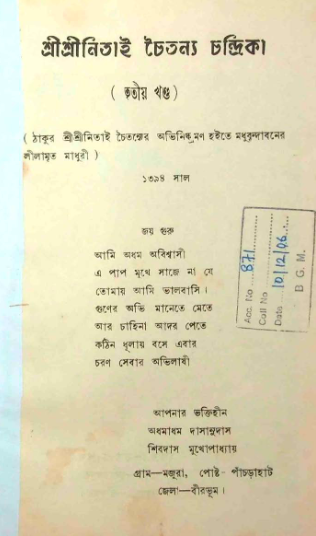 শ্রীশ্রীনিতাই চৈতন্য চন্দ্রিকা
( তৃতীয় খণ্ড )
( ঠাকুর শ্রীশ্রীনিতাই চৈতন্যের অভিনিষ্ক্রমণ হইতে মধুবৃন্দাবনের
লীলামৃত মাধুরী )
১৩৯৪ সাল
জয় গুরু
আমি অধম অবিশ্বাসী
এ পাপ মুখে সাজে না যে
তোমায় আমি ভালবাসি ।
গুণের অভি মানেতে মেতে
আর চাহিনা আদর পেতে
কঠিন ধূলায় বসে এবার
চরণ সেবার অভিলাষী
আপনার ভক্তিহীন
অধমাধম দাসানুদাস
শিবদাস মুখোপাধ্যায়
গ্রাম—মজুরা, পোষ্ট- পাঁচড়াহাট
জেলা—বীরভূম ।
Acc. No 871
Call No
Date 10/12/06
B. G. M.